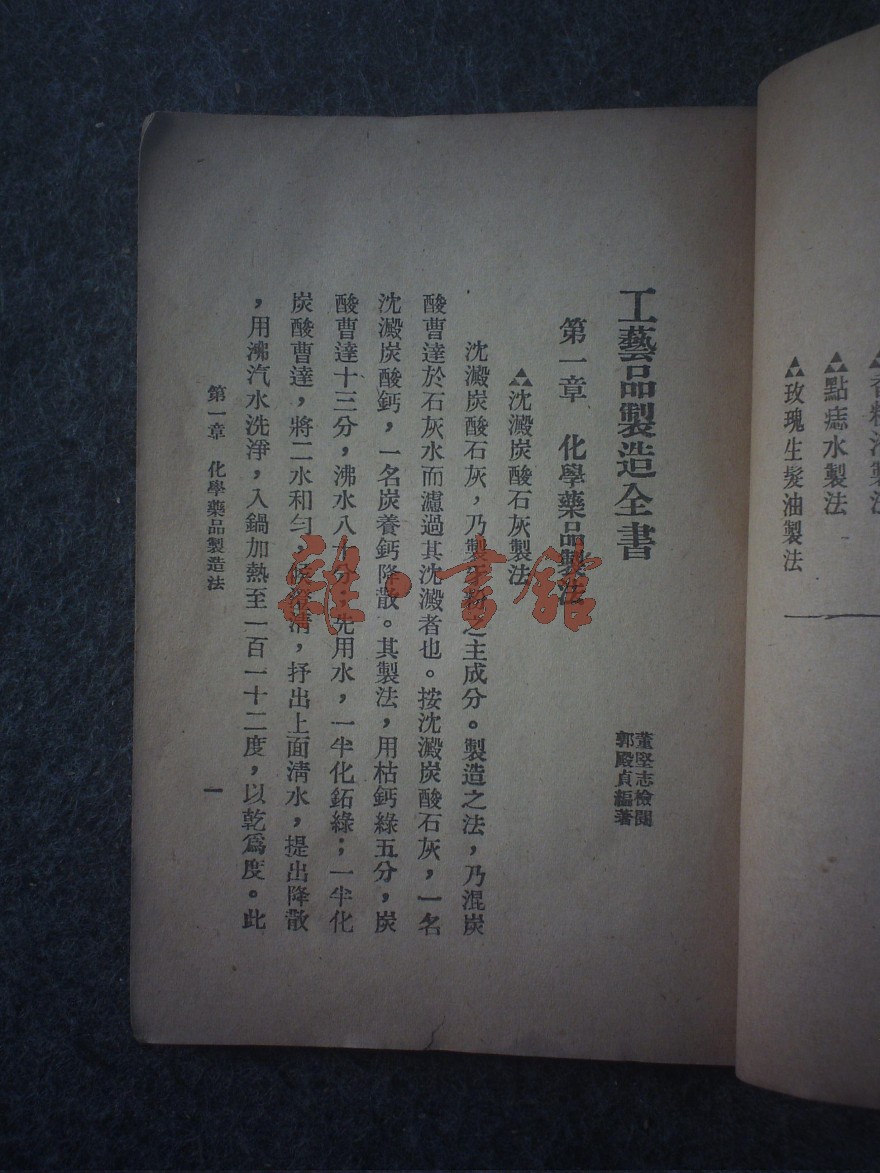 香粉
▲▲點痣水製法
▲▲玫瑰生髮油製法
工藝品製造全書
董堅志檢閱
郭殿貞編著
第一章 化學藥品製法
▲▲沈澱炭酸石灰製法
沈澱炭酸石灰，乃製牙粉之主成分。製造之法，乃混炭
酸曹達於石灰水而濾過其沈澱者也。按沈澱炭酸石灰，一名
沈澱炭酸鈣，一名炭養鈣降散。其製法，用枯鈣綠五分，炭
酸曹達十三分，沸水八十分，先用水，一半化鉐綠；一半化
炭酸曹達，將二水和勻，候澄清，抒出上面清水，提出降散
，用沸汽水洗淨，入鍋加熱至一百一十二度，以乾爲度。此
第一章 化學藥品製造法
一
雜·書館